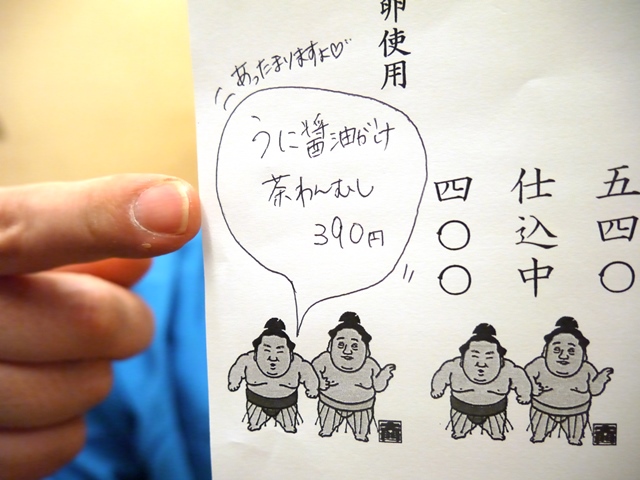 あったまりますよ♡
うに醤油がけ
茶わんむし
390円
五四〇
仕込中
四〇〇
卵使用